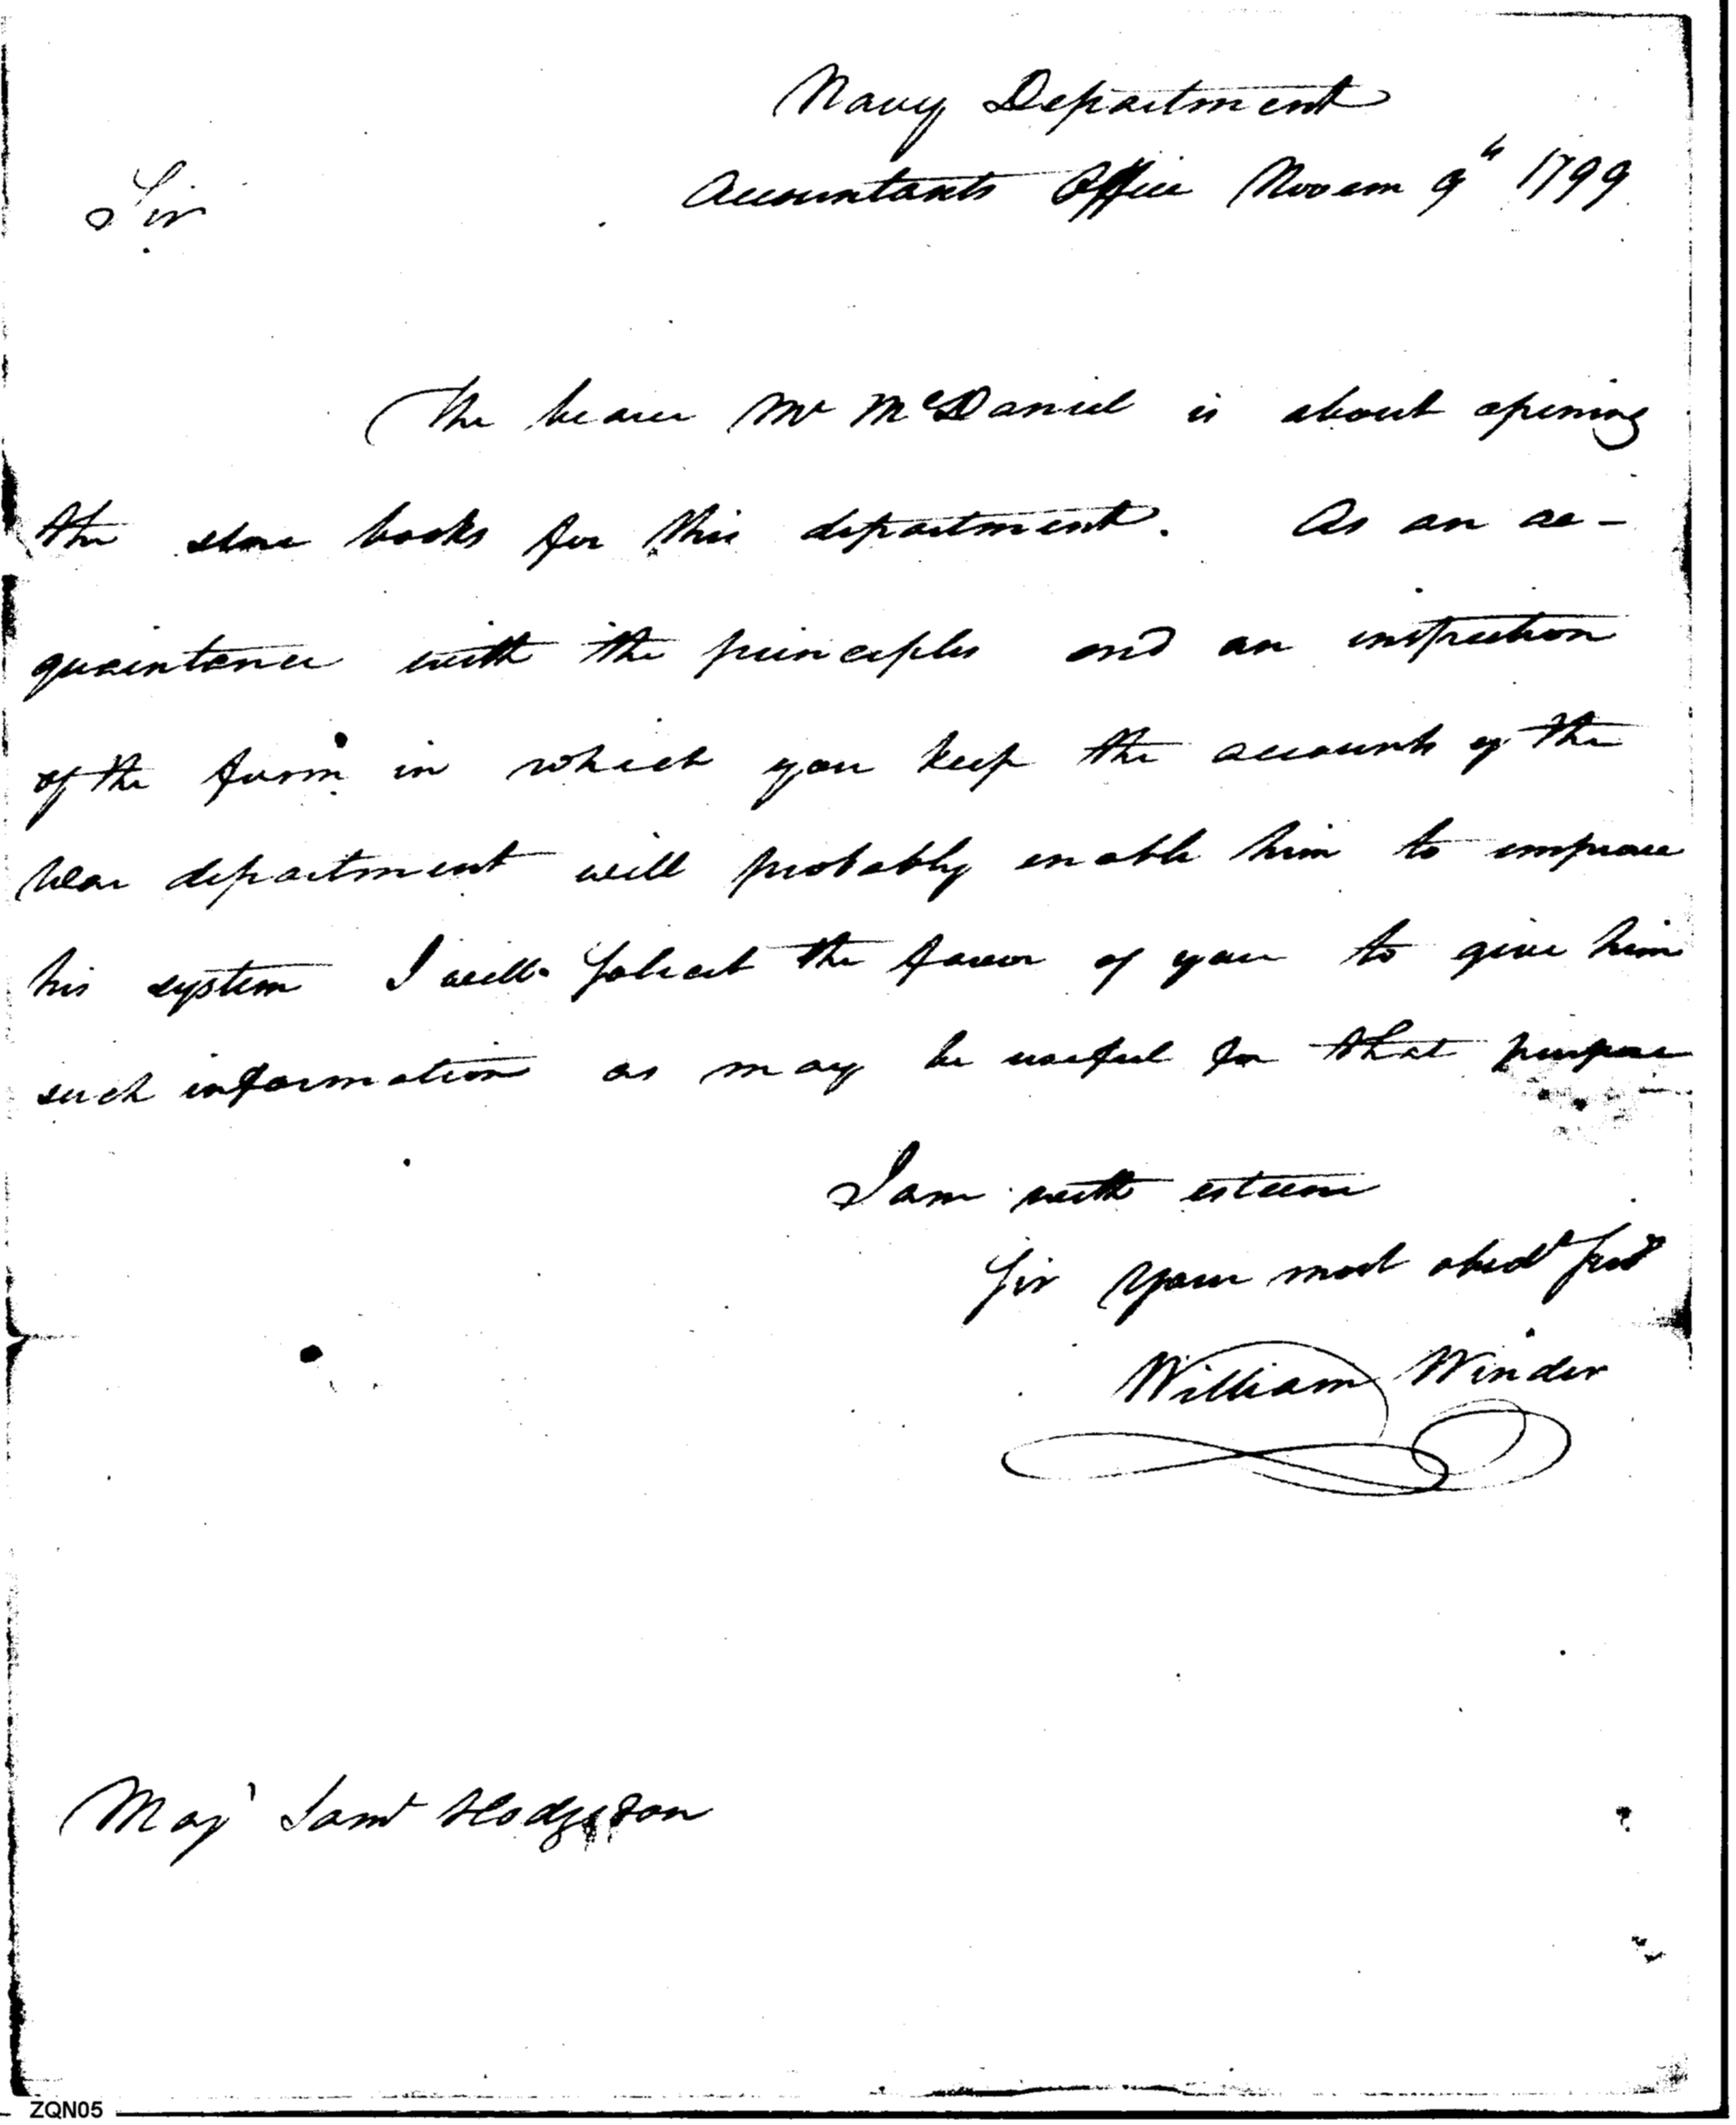 Navy Department
Accountants Office Novem 9th 1799
Sir
The bearer Mr McDaniel is about opening
the store books for this department. As an ac-
quaintance with the principles and an inspection
of the form in which you keep the accounts of the
War department will probably enable him to improve
his system I will solicit the favor of you to give him
such information as may be useful for that purpose
I am with esteem
Sir Your most obedt Servt
William Winder
Majr Saml Hodgsdon
ZQN05